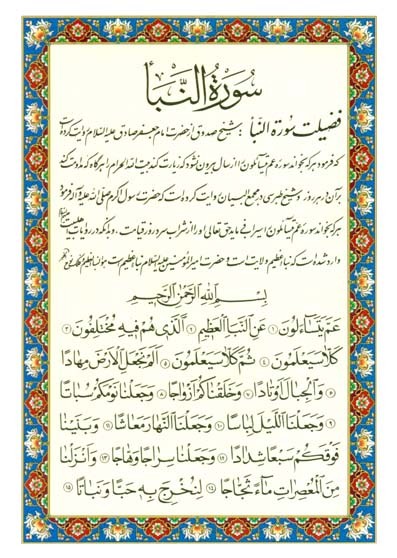 سُورَةُ النَّبَأ
فضیلت سورۀ النبأ : شیخ صدوق از حضرت امام جعفر صادق علیه‌السلام روایت کرده است
که فرمود هر که بخواند سوره عم یتسائلون از سال بیرون نشود که زیارت کند بیت الله الحرام را هرگاه که مداومت کند
بر آن در هر روز و شیخ طبرسی در مجمع البیان روایت کرده است که حضرت رسول اکرم صلی الله علیه و آله فرمود
هر که بخواند سوره عم یتسائلون را سیراب فرماید حق تعالی او را از شراب سرد روز قیامت و بدانکه در روایات اهلبیت
وارد شده است که نبأ عظیم ولایت است و حضرت امیرالمؤمنین علیه‌السلام نبأ عظیم است
بِسْمِ اللهِ الرَّحْمٰنِ الرَّحِیمِ
عَمَّ یَتَسَاءَلُونَ ۱ عَنِ النَّبَإِ الْعَظِیمِ ۲ الَّذِی هُمْ فِیهِ مُخْتَلِفُونَ ۳
کَلَّا سَیَعْلَمُونَ ۴ ثُمَّ کَلَّا سَیَعْلَمُونَ ۵ أَلَمْ نَجْعَلِ الْأَرْضَ مِهَادًا
۶ وَالْجِبَالَ أَوْتَادًا ۷ وَخَلَقْنَاکُمْ أَزْوَاجًا ۸ وَجَعَلْنَا نَوْمَکُمْ سُبَاتًا
۹ وَجَعَلْنَا اللَّیْلَ لِبَاسًا ۱۰ وَجَعَلْنَا النَّهَارَ مَعَاشًا ۱۱ وَبَنَیْنَا
فَوْقَکُمْ سَبْعًا شِدَادًا ۱۲ وَجَعَلْنَا سِرَاجًا وَهَّاجًا ۱۳ وَأَنْزَلْنَا
مِنَ الْمُعْصِرَاتِ مَاءً ثَجَّاجًا ۱۴ لِنُخْرِجَ بِهِ حَبًّا وَنَبَاتًا ۱۵